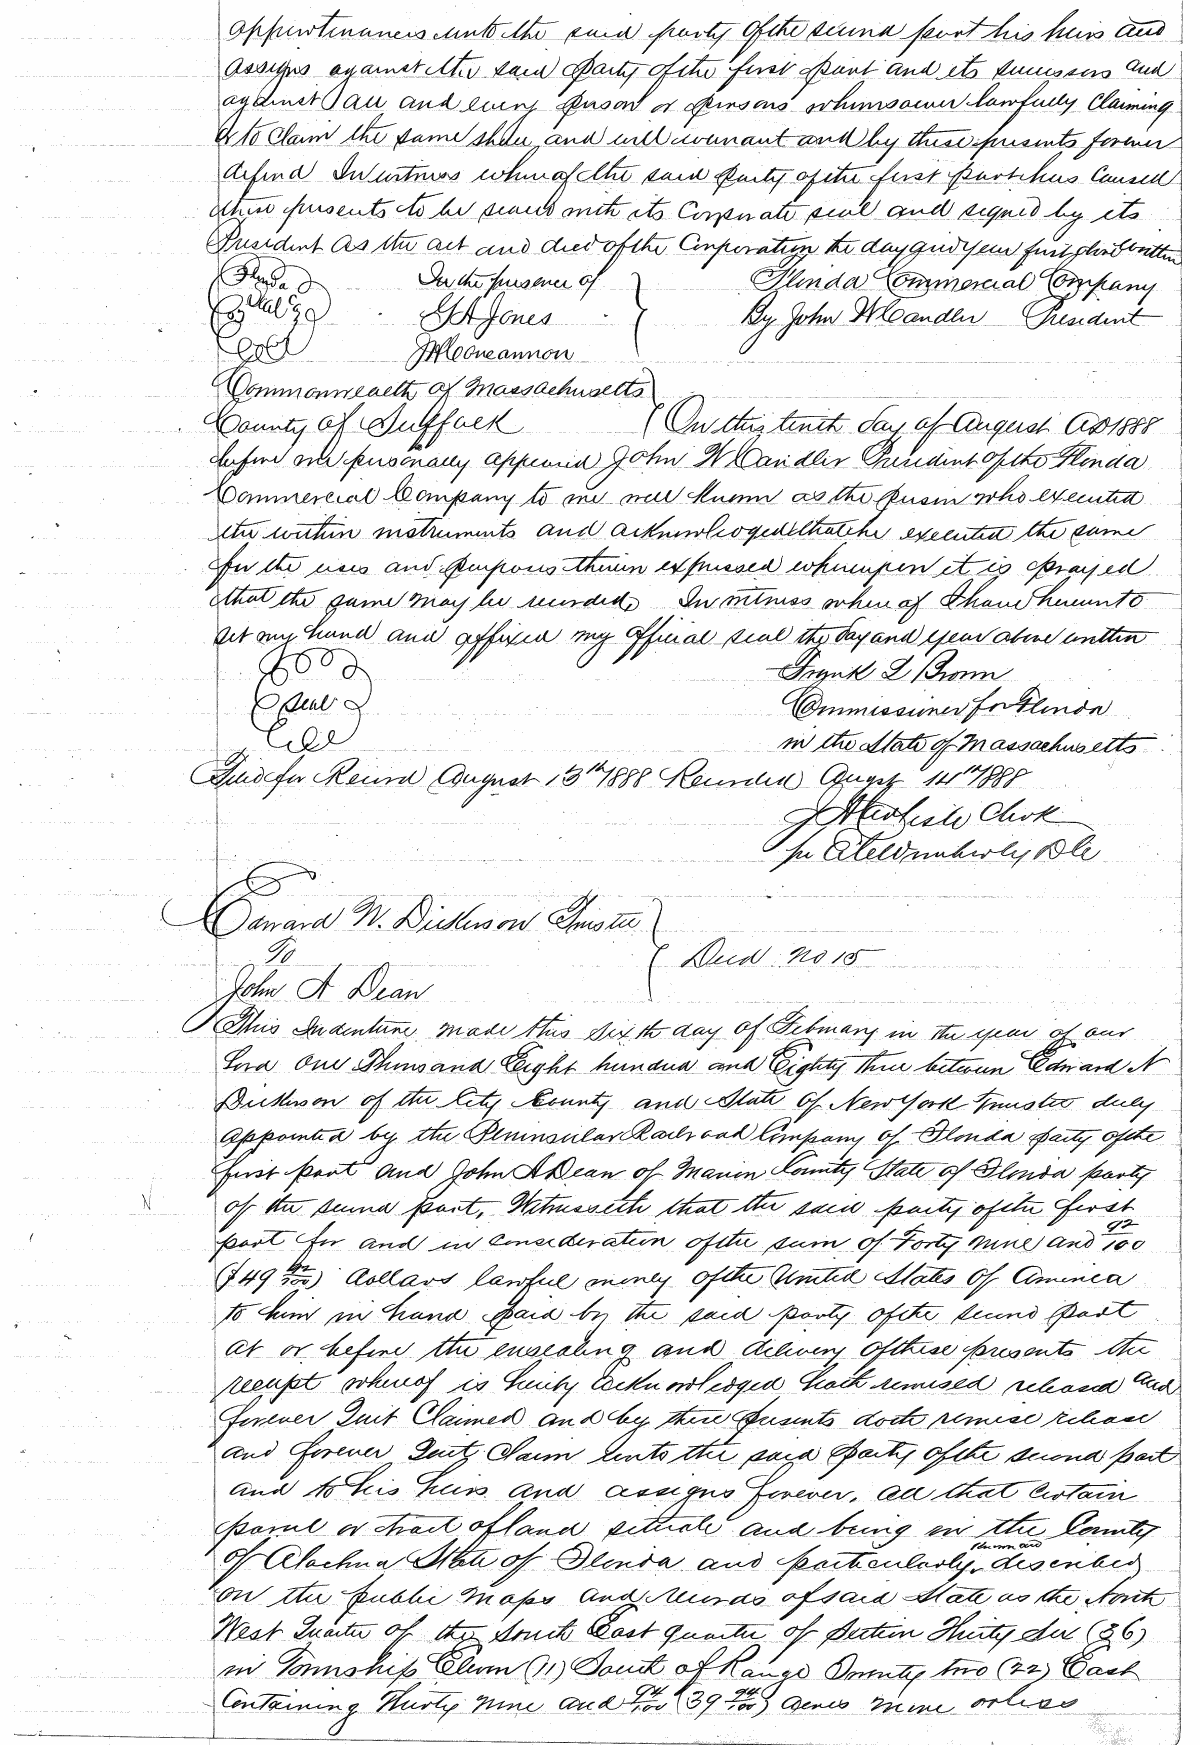 appurtenances unto the said party of the second part his heirs and
assigns against the said party of the first part and its successors and
against all and every person or persons whomsoever lawfully claiming
or to claim the same shall and will warrant and by these presents forever
defend In witness whereof the said party of the first part has caused
these presents to be sealed with its Corporate seal and signed by its
President as the act and deed of the Corporation the day and year first above written
Florida In the presence of Florida Commercial Company
Seal G A Jones By John W Candler President
Commonwealth of Massachusetts
County of Suffolk On this tenth day of August AD 1888
before me personally appeared John W Candler President of the Florida
Commercial Company to me well known as the person who executed
the within instruments and acknowledged that he executed the same
for the uses and purposes therein expressed whereupon it is prayed
that the same may be recorded. In witness where of I have hereunto
set my hand and affixed my official seal the day and year above written
Frank L Brown
Seal Commissioner for Florida
in the State of Massachusetts
Filed for Record August 13th 1888 Recorded Augst 14th 1888
J A Carlisle Clerk
per DC
Edward N. Dickerson Trustee
To Deed no 15
John A Dean
This Indenture made this sixth day of February in the year of our
Lord One Thousand Eight hundred and Eighty three between Edward N
Dickerson of the City County and State of New York Trustee duly
appointed by the Peninsular Railroad Company of Florida party of the
first part and John A Dean of Marion County State of Florida party
of the second part, Witnesseth that the said party of the first
part for and in consideration of the sum of Forty nine and 92/100
($49 92/100) dollars lawful money of the United States of America
to him in hand paid by the said party of the second part
at or before the ensealing and delivery of these presents the
receipt whereof is hereby acknowledged hath remised released and
forever Quit Claimed and by these presents doth remise release
and forever Quit Claim unto the said party of the second part
and to his heirs and assigns forever, all that certain
parcel or tract of land situate and being in the County
of Alachua State of Florida and particularly known and described
on the public maps and records of said State as the North
West Quarter of the South East quarter of Section Thirty Six (36)
in Township Eleven (11) South of Range Twenty two (22) East
Containing Thirty nine and 94/100 (39 94/100) acres more or less